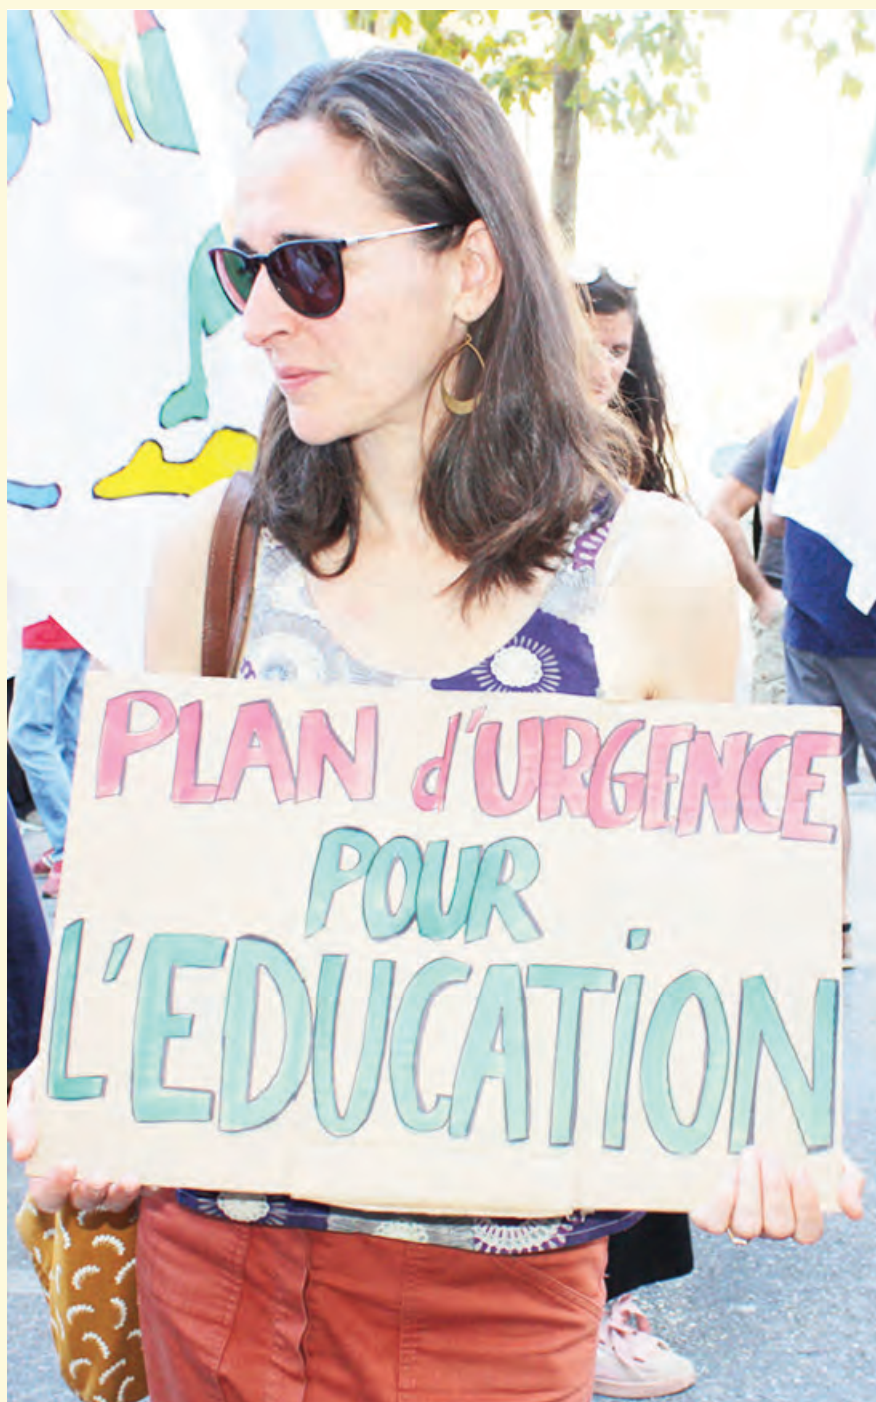 PLAN d'URGENCE
POUR
L'EDUCATiON